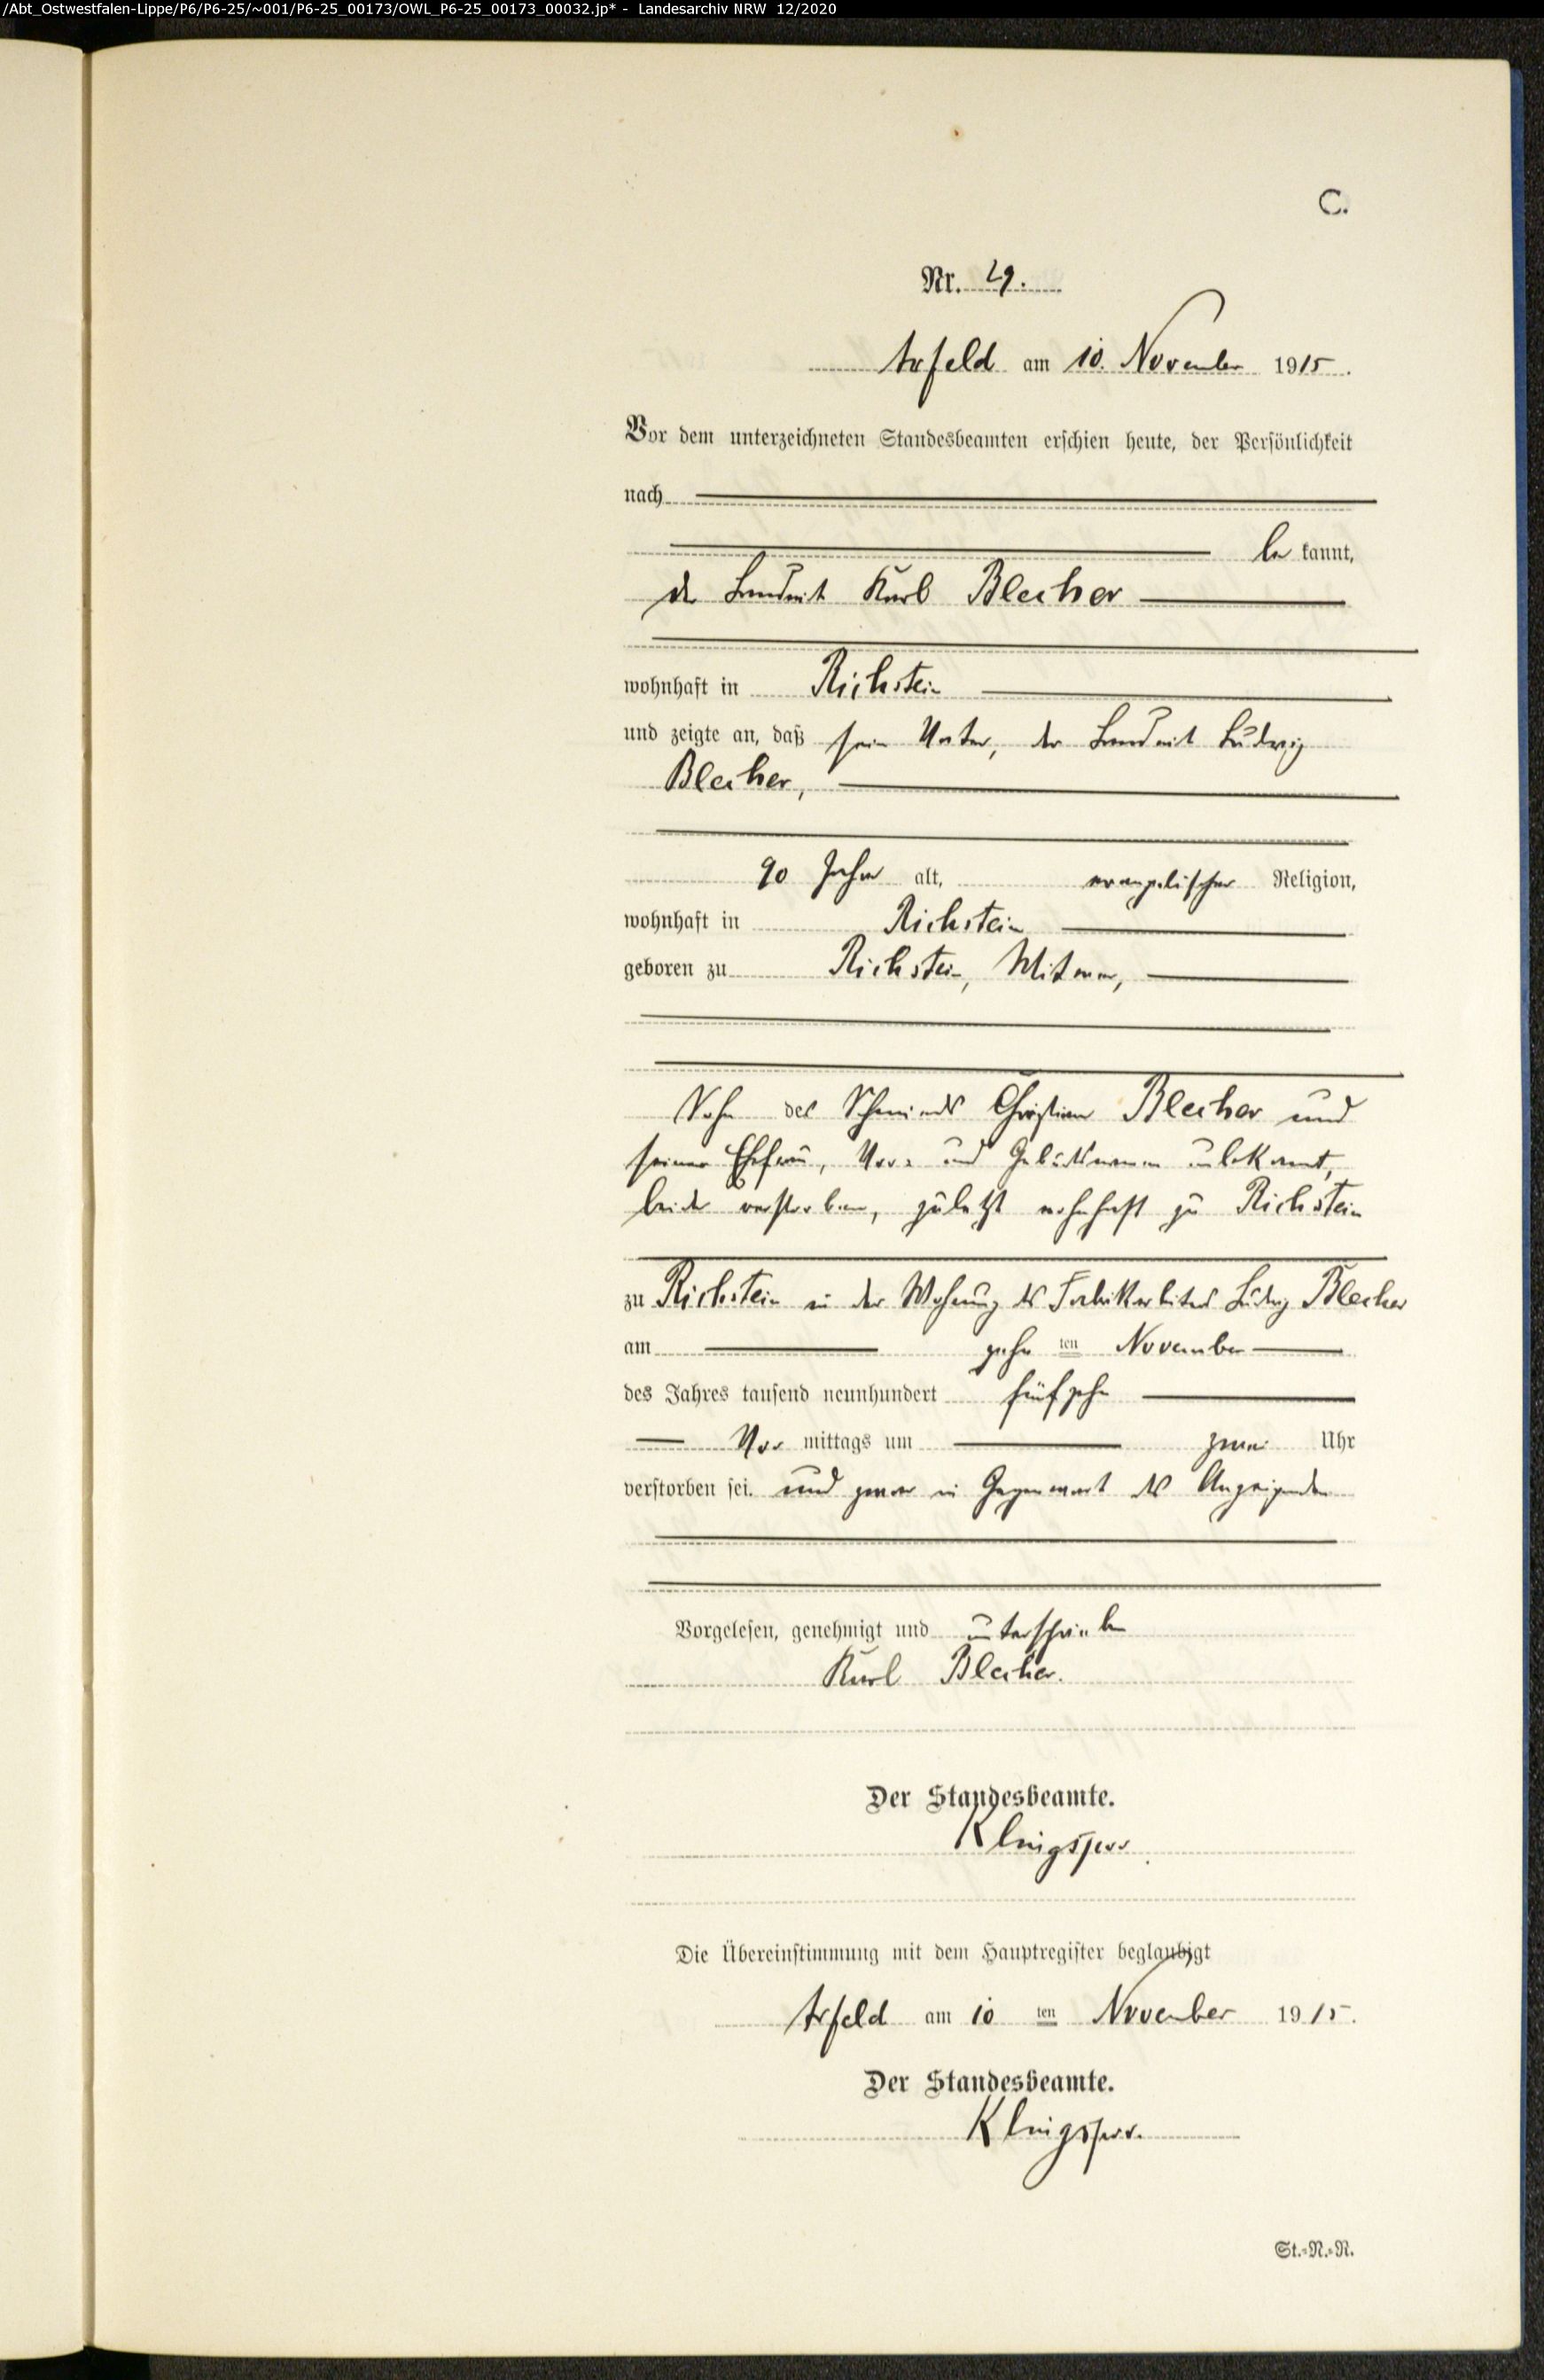 /Abt_Ostwestfalen-Lippe/P6/P6-25/~001/P6-25_00173/OWL_P6-25_00173_00032.jp* - Landesarchiv NRW 12/2020
C.
Nr. 29.
Arfeld am 10. November 1915.
Vor dem unterzeichneten Standesbeamten erschien heute, der Persönlichkeit
nach
be kannt,
der Landwirt Karl Blecher
wohnhaft in Richstein
und zeigte an, daß sein Vater, der Landwirt Ludwig
Blecher,
90 Jahre alt, evangelischer Religion,
wohnhaft in Richstein
geboren zu Richstein, Witwer,
Sohn des Schmieds Christian Blecher und
seiner Ehefrau, Vor= und Geburtsnamen unbekannt,
beide verstorben, zuletzt wohnhaft zu Richstein
zu Richstein in der Wohnung des Fabrikarbeiters Ludwig Blecher
am zehn ten November
des Jahres tausend neunhundert fünfzehn
Vor mittags um zwei Uhr
verstorben sei. und zwar in Gegenwart des Anzeigenden
Vorgelesen, genehmigt und unterschrieben
Karl Blecher.
Der Standesbeamte.
Klingspor
Die Übereinstimmung mit dem Hauptregister beglaubigt
Arfeld am 10 ten November 1915.
Der Standesbeamte.
Klingspor.
St.=N.=R.